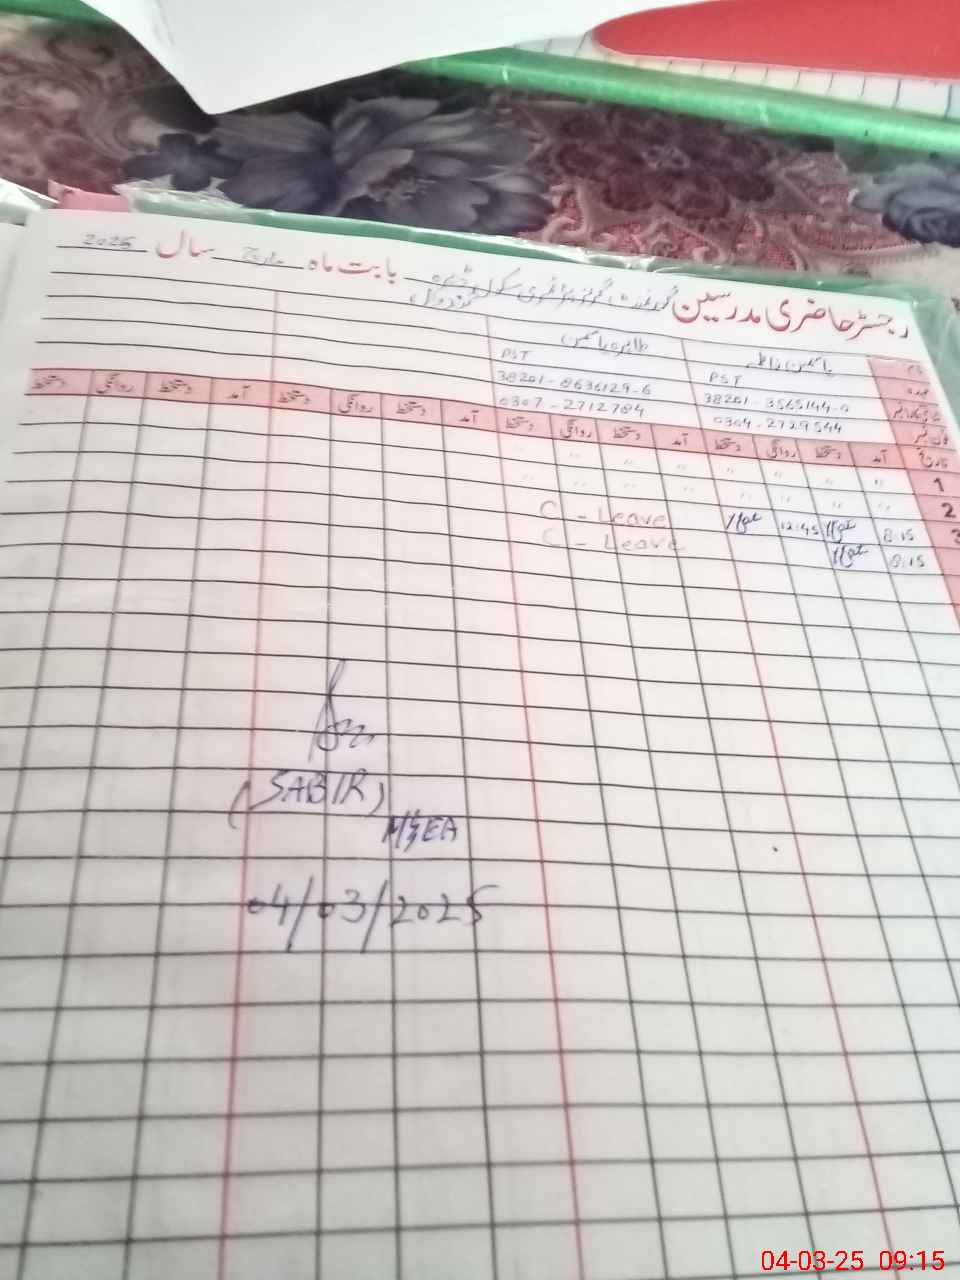 رجسٹر حاضری مدرسین گورنمنٹ گرلز پرائمری سکول بابت ماہ مارچ سال 2025
نام طاہرہ یاسمین
عہدہ PST PST
38201-3565144-0 38201-8636129-6
فون نمبر 0304-2729544 0307-2712784
تاریخ آمد دستخط روانگی دستخط آمد دستخط روانگی دستخط آمد دستخط روانگی دستخط آمد دستخط روانگی دستخط
1 " " " " " " " "
2 " " " " " " " "
3 8:15 12:45 C - Leave
8:15 C - Leave
(SABIR)
M&EA
04/03/2025
04-03-25 09:15